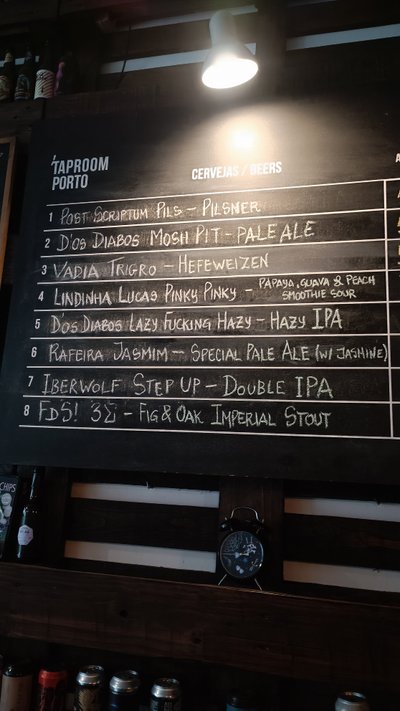 'TAPROOM
PORTO
CERVEJAS / BEERS
1 POST SCRIPTUM PILS - PILSNER
2 D'OS DIABOS MOSH PIT - PALE ALE
3 VADIA TRIGRO - HEFEWEIZEN
4 LINDINHA LUCAS PINKY PINKY - PAPAYA, GUAVA & PEACH
SMOOTHIE SOUR
5 D'OS DIABOS LAZY FUCKING HAZY - HAZY IPA
6 RAFEIRA JASMIM - SPECIAL PALE ALE (W/ JASMINE)
7 IBERWOLF STEP UP - DOUBLE IPA
8 FDS! 3Σ - FIG & OAK IMPERIAL STOUT
CHIPS